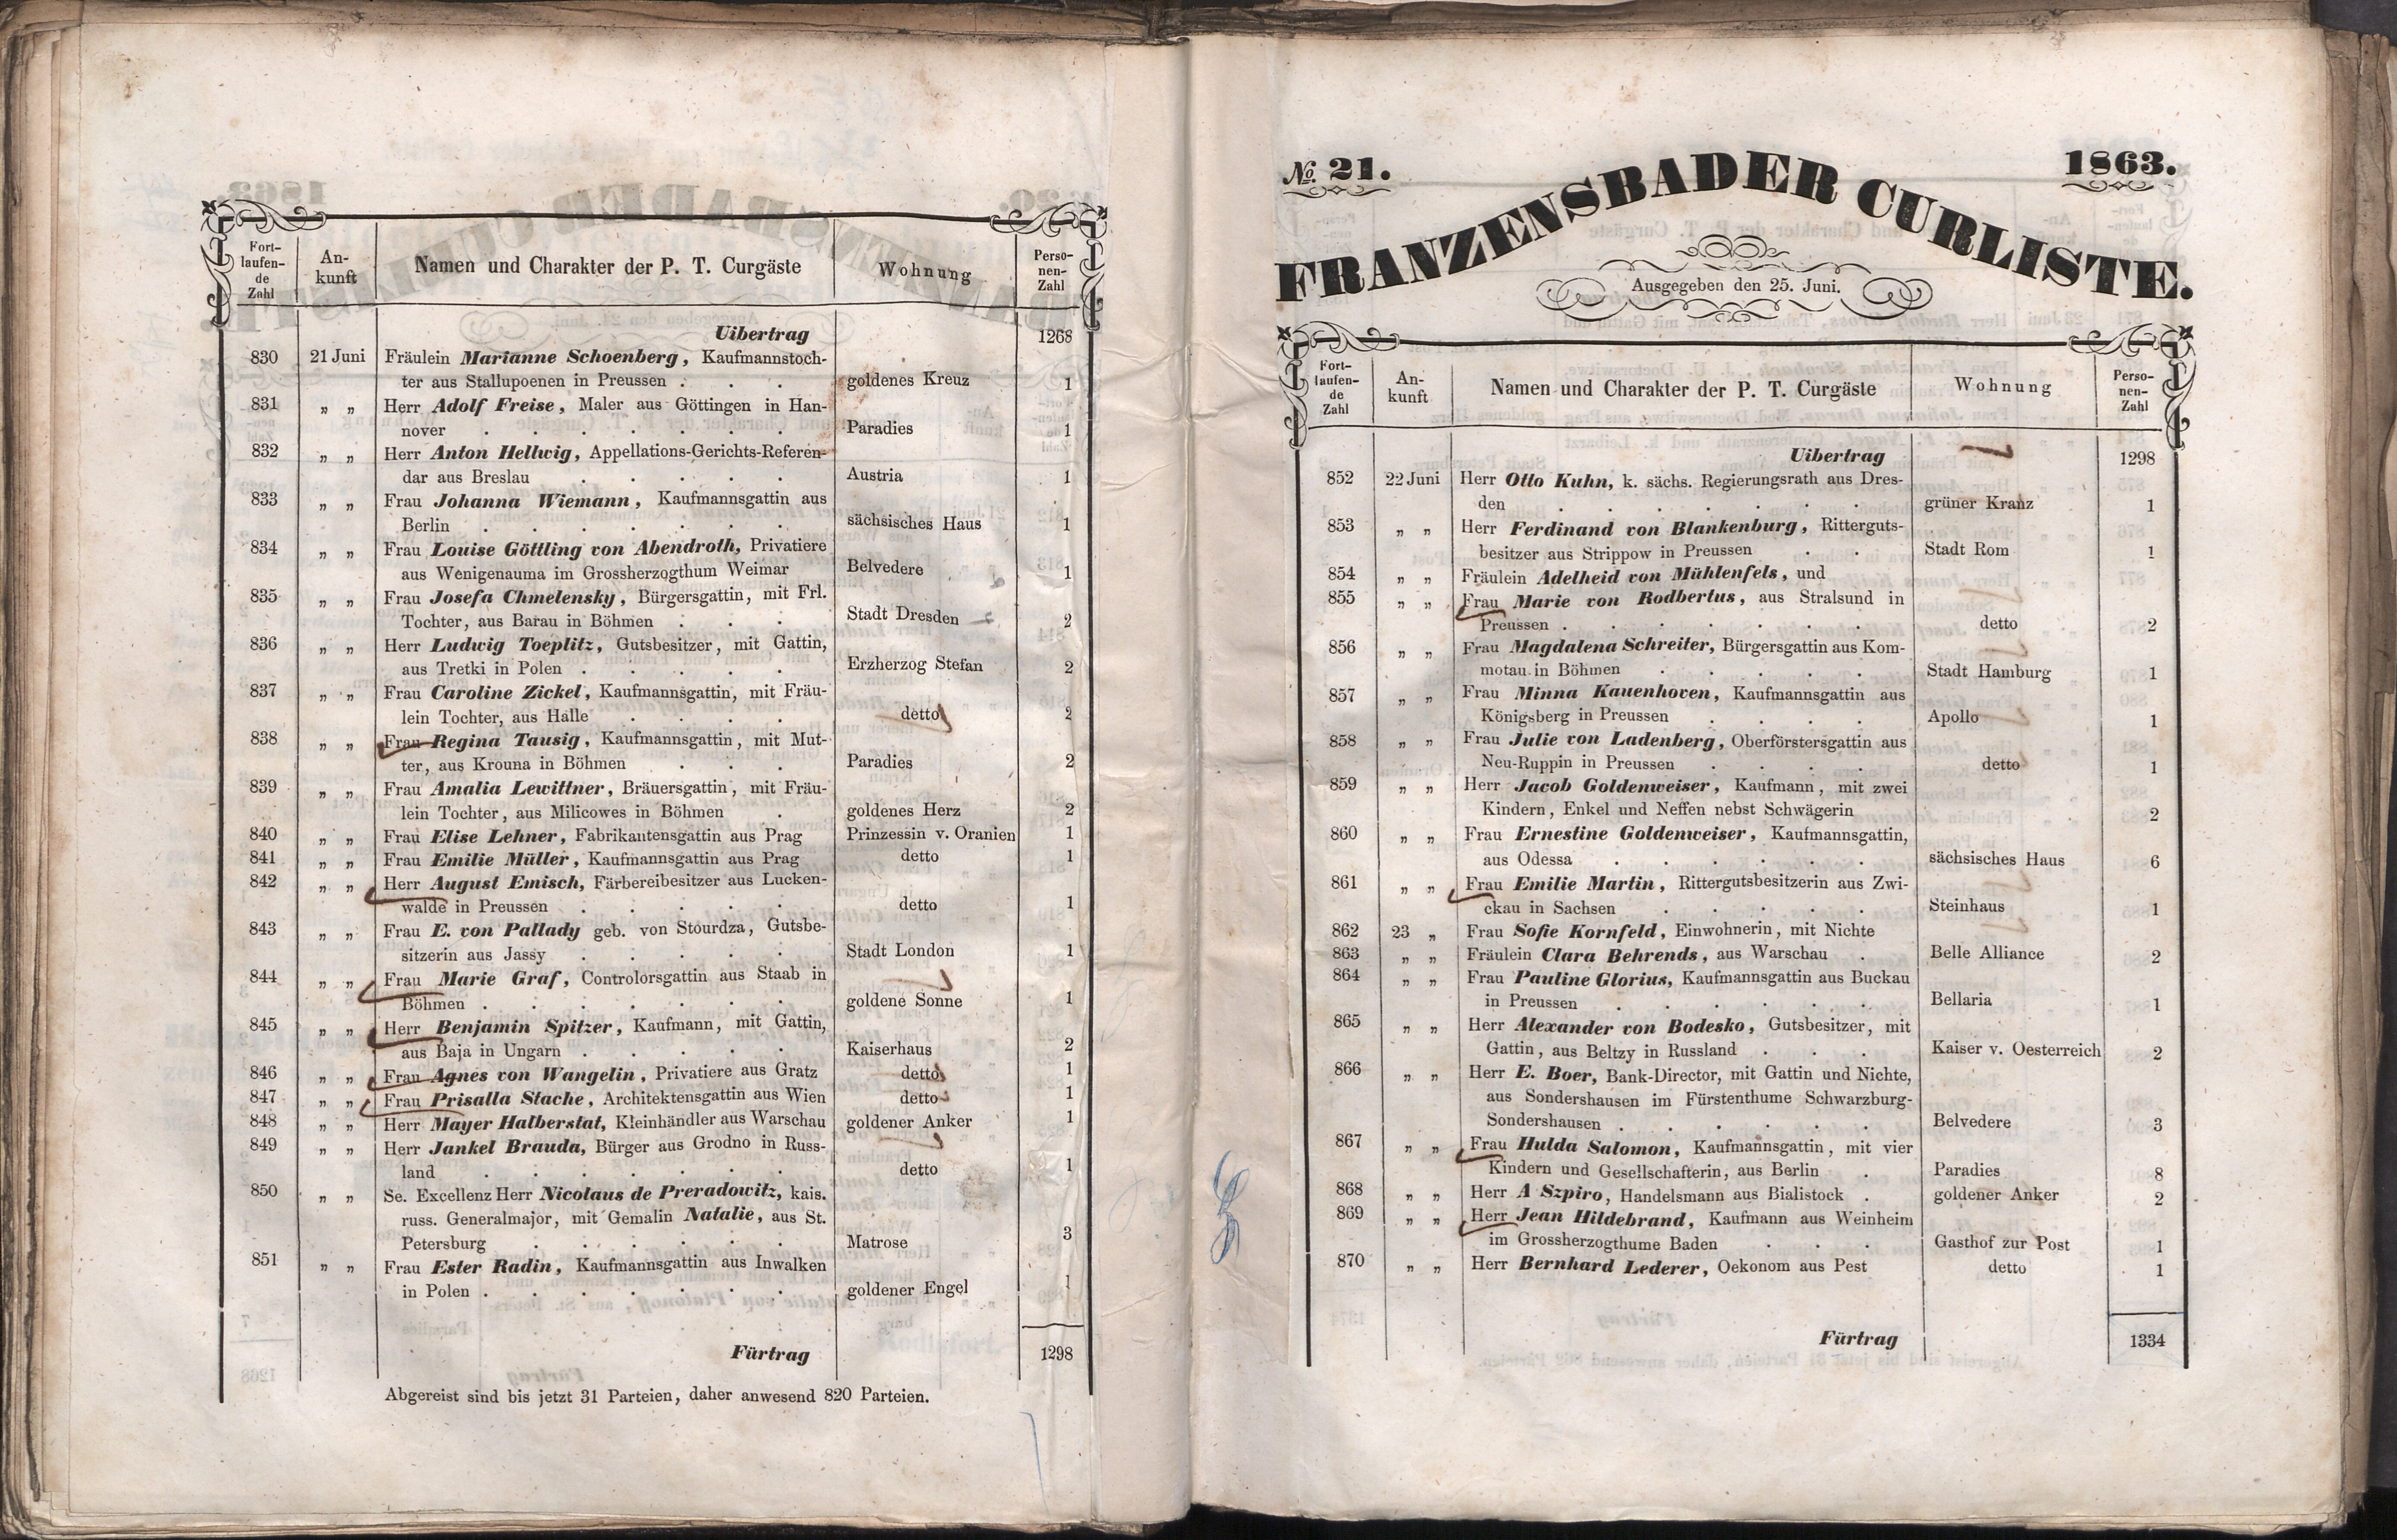 Fort-
laufen-
de
Zahl
An-
kunft
Namen und Charakter der P. T. Curgäste
Wohnung
Perso-
nen-
Zahl
Uibertrag 1268
830 21 Juni Fräulein Marianne Schoenberg, Kaufmannstoch-
ter aus Stallupoenen in Preussen . . . goldenes Kreuz 1
831 „ „ Herr Adolf Freise, Maler aus Göttingen in Han-
nover . . . . . . . Paradies 1
832 „ „ Herr Anton Hellwig, Appellations-Gerichts-Referen-
dar aus Breslau . . . . . Austria 1
833 „ „ Frau Johanna Wiemann, Kaufmannsgattin aus
Berlin . . . . . . . sächsisches Haus 1
834 „ „ Frau Louise Göttling von Abendroth, Privatiere
aus Wenigenauma im Grossherzogthum Weimar Belvedere 1
835 „ „ Frau Josefa Chmelensky, Bürgersgattin, mit Frl.
Tochter, aus Barau in Böhmen . . . Stadt Dresden 2
836 „ „ Herr Ludwig Toeplitz, Gutsbesitzer, mit Gattin,
aus Tretki in Polen . . . . . Erzherzog Stefan 2
837 „ „ Frau Caroline Zickel, Kaufmannsgattin, mit Fräu-
lein Tochter, aus Halle . . . . detto 2
838 „ „ Frau Regina Tausig, Kaufmannsgattin, mit Mut-
ter, aus Krouna in Böhmen . . . Paradies 2
839 „ „ Frau Amalia Lewittner, Bräuersgattin, mit Fräu-
lein Tochter, aus Milicowes in Böhmen . goldenes Herz 2
840 „ „ Frau Elise Lehner, Fabrikantensgattin aus Prag Prinzessin v. Oranien 1
841 „ „ Frau Emilie Müller, Kaufmannsgattin aus Prag detto 1
842 „ „ Herr August Emisch, Färbereibesitzer aus Lucken-
walde in Preussen . . . . . detto 1
843 „ „ Frau E. von Pallady geb. von Stourdza, Gutsbe-
sitzerin aus Jassy . . . . . Stadt London 1
844 „ „ Frau Marie Graf, Controlorsgattin aus Staab in
Böhmen . . . . . . . goldene Sonne 1
845 „ „ Herr Benjamin Spitzer, Kaufmann, mit Gattin,
aus Baja in Ungarn . . . . . Kaiserhaus 2
846 „ „ Frau Agnes von Wangelin, Privatiere aus Gratz detto 1
847 „ „ Frau Prisalla Stache, Architektensgattin aus Wien detto 1
848 „ „ Herr Mayer Halberstat, Kleinhändler aus Warschau goldener Anker 1
849 „ „ Herr Jankel Brauda, Bürger aus Grodno in Russ-
land . . . . . . . detto 1
850 „ „ Se. Excellenz Herr Nicolaus de Preradowitz, kais.
russ. Generalmajor, mit Gemalin Natalie, aus St.
Petersburg . . . . . . Matrose 3
851 „ „ Frau Ester Radin, Kaufmannsgattin aus Inwalken
in Polen . . . . . . . goldener Engel 1
Fürtrag 1298
Abgereist sind bis jetzt 31 Parteien, daher anwesend 820 Parteien.
No. 21. 1863.
FRANZENSBADER CURLISTE.
Ausgegeben den 25. Juni.
Fort-
laufen-
de
Zahl
An-
kunft
Namen und Charakter der P. T. Curgäste
Wohnung
Perso-
nen-
Zahl
Uibertrag 1298
852 22 Juni Herr Otto Kuhn, k. sächs. Regierungsrath aus Dres-
den . . . . . . . grüner Kranz 1
853 „ „ Herr Ferdinand von Blankenburg, Ritterguts-
besitzer aus Strippow in Preussen . . Stadt Rom 1
854 „ „ Fräulein Adelheid von Mühlenfels, und
855 „ „ Frau Marie von Rodbertus, aus Stralsund in
Preussen . . . . . . . detto 2
856 „ „ Frau Magdalena Schreiter, Bürgersgattin aus Kom-
motau in Böhmen . . . . . Stadt Hamburg 1
857 „ „ Frau Minna Kauenhoven, Kaufmannsgattin aus
Königsberg in Preussen . . . . Apollo 1
858 „ „ Frau Julie von Ladenberg, Oberförstersgattin aus
Neu-Ruppin in Preussen . . . . detto 1
859 „ „ Herr Jacob Goldenweiser, Kaufmann, mit zwei
Kindern, Enkel und Neffen nebst Schwägerin 2
860 „ „ Frau Ernestine Goldenweiser, Kaufmannsgattin,
aus Odessa . . . . . . sächsisches Haus 6
861 „ „ Frau Emilie Martin, Rittergutsbesitzerin aus Zwi-
ckau in Sachsen . . . . . Steinhaus 1
862 23 „ Frau Sofie Kornfeld, Einwohnerin, mit Nichte
863 „ „ Fräulein Clara Behrends, aus Warschau . Belle Alliance 2
864 „ „ Frau Pauline Glorius, Kaufmannsgattin aus Buckau
in Preussen . . . . . Bellaria 1
865 „ „ Herr Alexander von Bodesko, Gutsbesitzer, mit
Gattin, aus Beltzy in Russland . . . Kaiser v. Oesterreich 2
866 „ „ Herr E. Boer, Bank-Director, mit Gattin und Nichte,
aus Sondershausen im Fürstenthume Schwarzburg-
Sondershausen . . . . . . Belvedere 3
867 „ „ Frau Hulda Salomon, Kaufmannsgattin, mit vier
Kindern und Gesellschafterin, aus Berlin . Paradies 8
868 „ „ Herr A Szpiro, Handelsmann aus Bialistock . goldener Anker 2
869 „ „ Herr Jean Hildebrand, Kaufmann aus Weinheim
im Grossherzogthume Baden . . . Gasthof zur Post 1
870 „ „ Herr Bernhard Lederer, Oekonom aus Pest detto 1
Fürtrag 1334